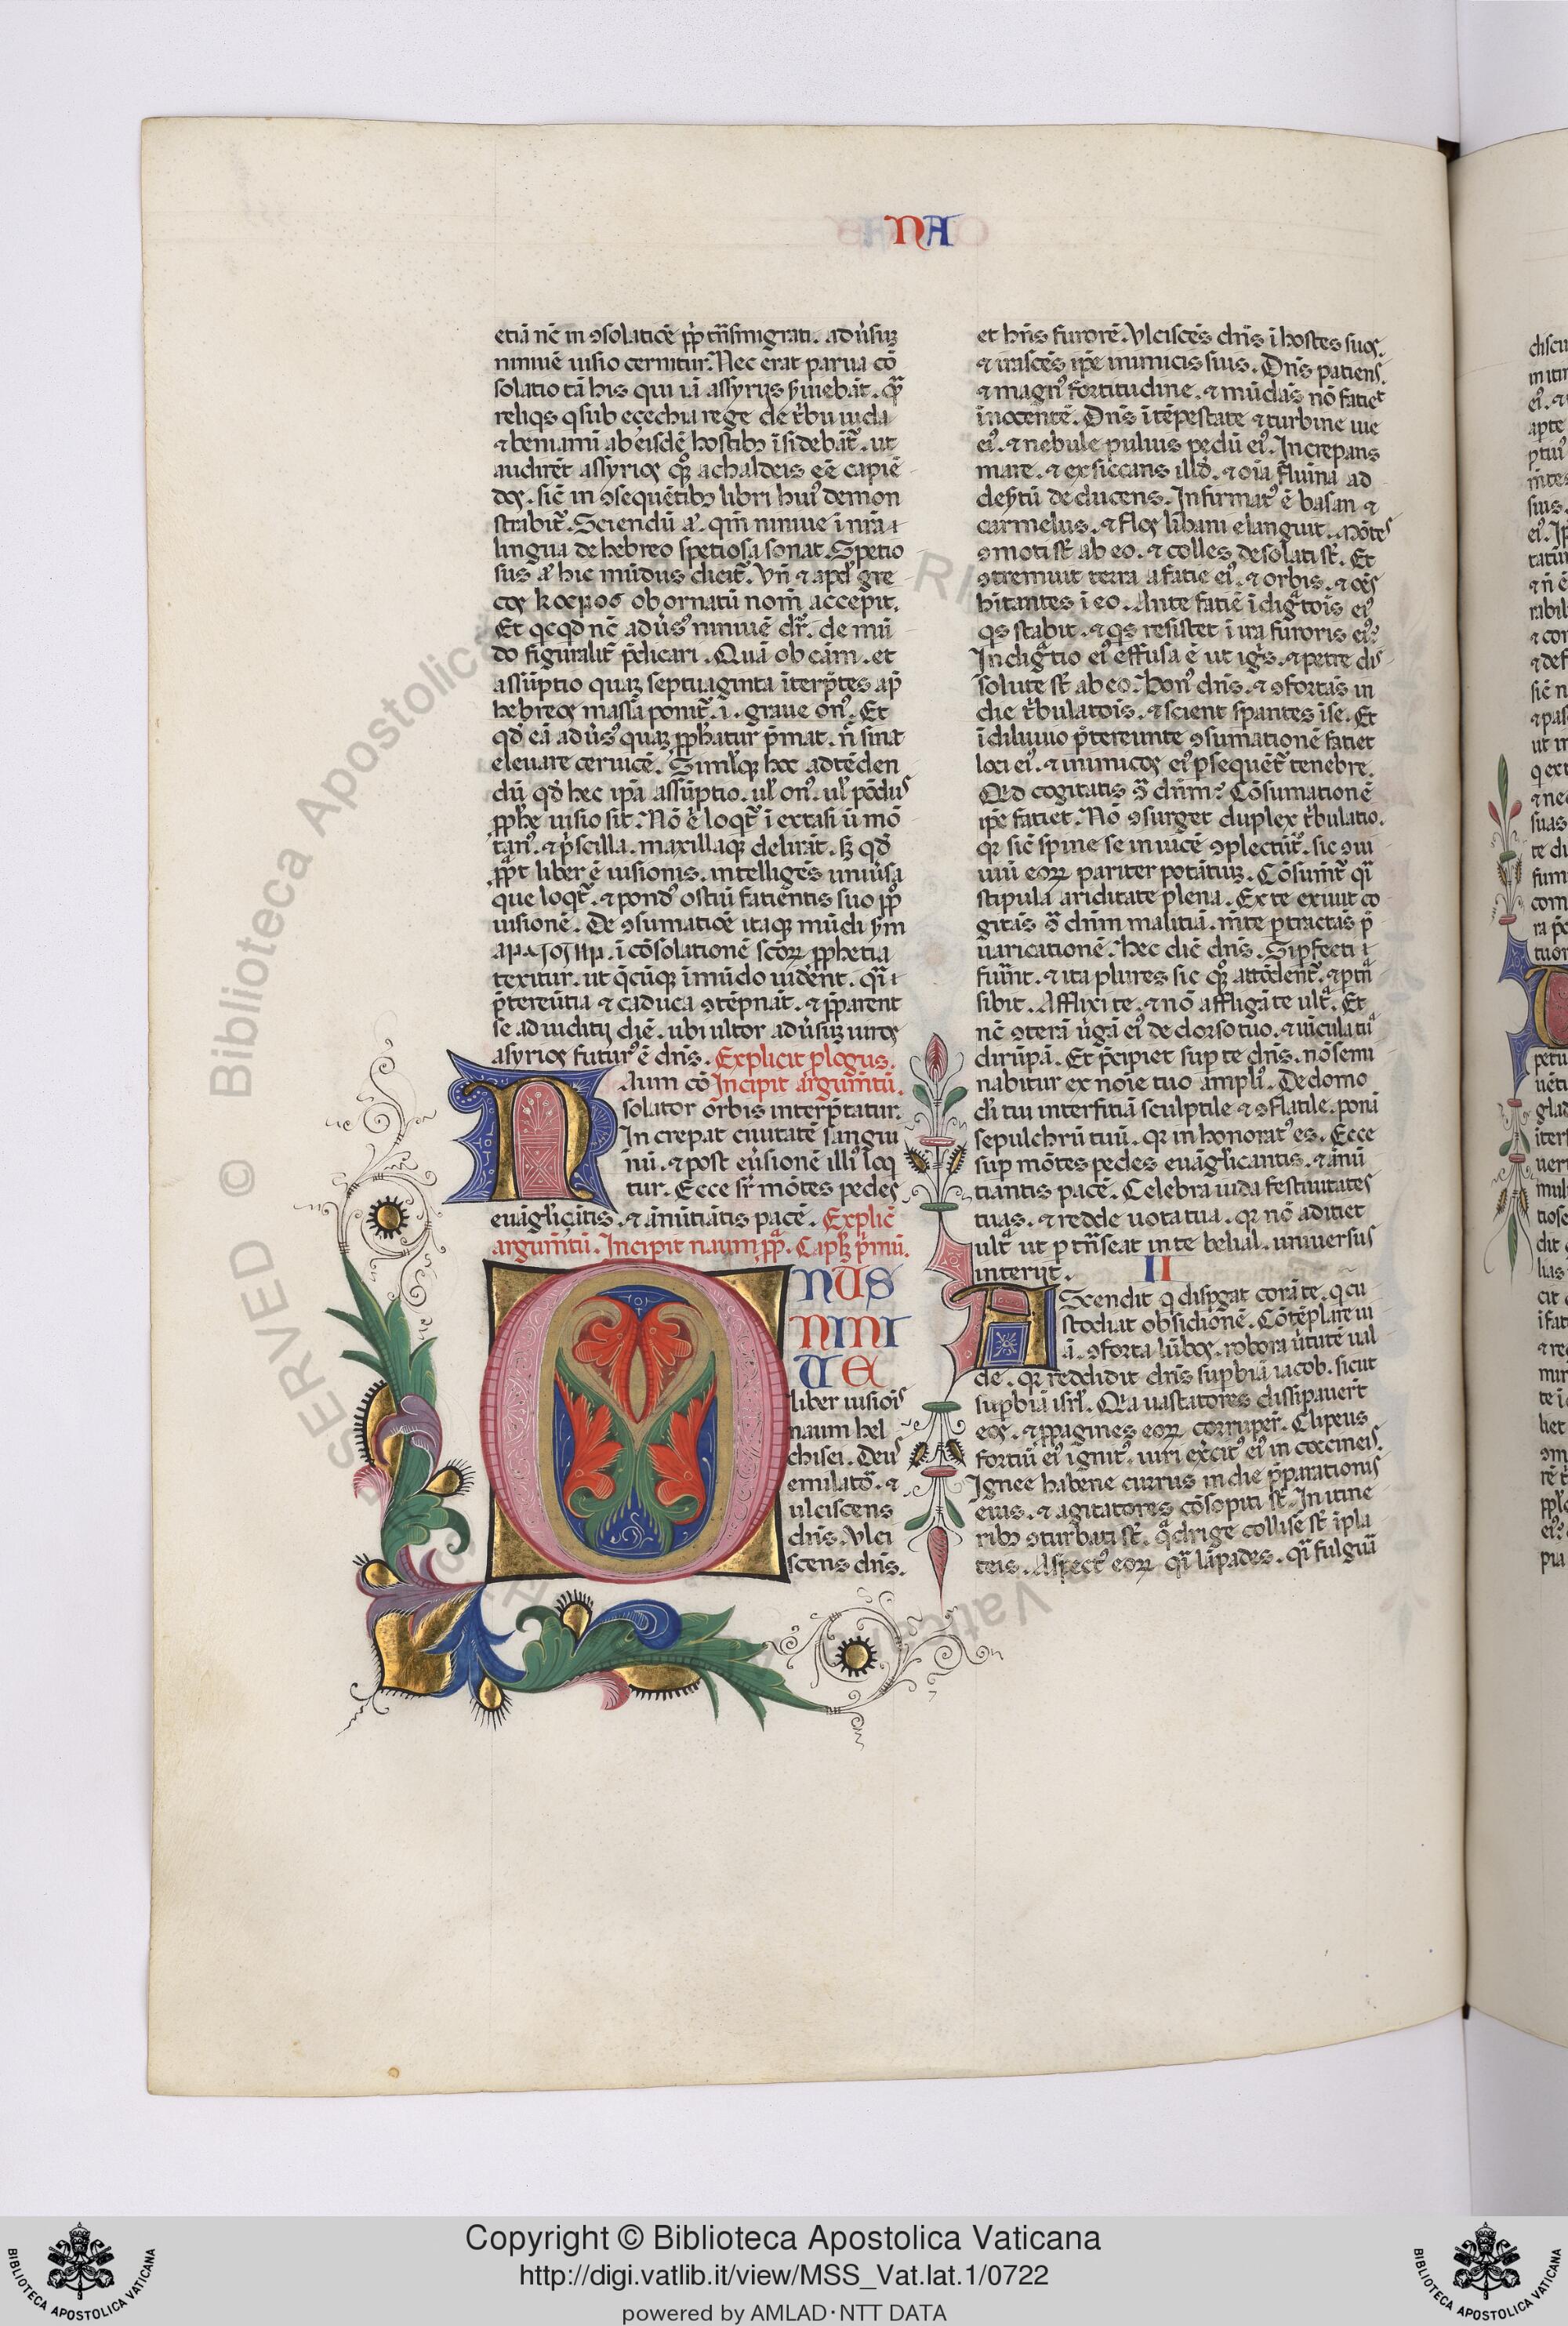 NA
etiā nc̄ in ꝯsolaticē ꝓp̄ tn̄smigrati. adūsuꝫ
niniuē uisio cernitur. Nec erat parua cō
solatio tā his qui iā assyrijs ẜuiebāt. qͣꝫ
reliqs q sub eçechia rege de tͥbu iuda
⁊ beniami ab eisdē hostibꝫ īsidebāt᷑. ut
audirēt assyrioꝫ qꝫ a chaldeis eē capiē
doꝫ. sic̄ in ꝯsequētibꝫ libri huiꝰ demon
strabit᷑. Sciendū aͭ. qm̄ niniue ī nr̄a
lingua de hebreo spetiosa sonat. Spetio
sus aͭ hic mūdus dicit᷑. Vn̄ ⁊ apd̕ gre
coꝫ kocpos ob ornatū nom̄ accepit.
Et qcqd nc̄ adūsꝰ niniuē dr̄. de mū
do figuralit᷑ p̄dicari. Quā ob cām. et
assūptio quaꝫ septuaginta īterp̄tes ap̄
hebreoꝫ massā ponit᷑. i. graue onꝰ. Et
qd̕ eā adūsꝰ quaꝫ ꝓphatur p̄mat. n̄ sinat
eleuare ceruicē. Similꝰqꝫ hoc adtēden
dū qd̕ hec ipā assūptio. ul̕ onꝰ. ul̕ pōdus
ꝓphe uisio sit. Nō ē loqt᷑ ī extasi ū mō
tanꝰ. ⁊ pͥscilla. maxillaqꝫ delirāt. sꝫ qd̕
ꝓp̄t liber ē uisionis. intelligēs uniūsa
que loqt᷑. ⁊ pondꝰ ostiū fatientis suo ꝓp̄
uisionē. De ꝯsumaticē itaqꝫ mūdi ẜm
ī cōsolationē sc̄oꝝ ꝓphetia
texitur. ut q̄cūqꝫ ī mūdo uident. qͣi
p̄tereūtia ⁊ caduca ꝯtēpnāt. ⁊ ꝓparent
se ad iuditij diē. ubi ultor adūsuꝫ uiroꝫ
asyrioꝫ futurꝰ ē dn̄s. Explicit plogus.
Naum cō Incipit argum̄tū.
solator orbis interp̄tatur.
Increpat ciuitatē sangui
nū. ⁊ post eūsionē illiꝰ loq
tur. Ecce sr̄ mōtes pedes
euāgliçātis. ⁊ ānūtiātis pacē. Explic̄
argum̄tū. Incipit naum ꝓpͣ. Capl̕ꝫ pͥmū.
ONUS
NINI
UE
liber uisiōis
naum hel
chisei. Deus
emulator. ⁊
ulciscens
dn̄s. Vlci
scens dn̄s.
et hn̄s furorē. Vlciscēs dn̄s ī hostes suoꝫ.
⁊ irascēs ip̄e inimicis suis. Dn̄s patiens.
⁊ magnꝰ fortitudine. ⁊ mūdās nō fatiet
īnocentē. Dn̄s ī tēpestate ⁊ turbine uie
eiꝰ. ⁊ nebule puluis pedū eiꝰ. Increpans
mare. ⁊ exsiccans illd̕. ⁊ oīa flūina ad
desẜtū deducens. Infirmatꝰ ē basan ⁊
carmelus. ⁊ flos libani elanguit. Mōtes
ꝯmoti sr̄ ab eo. ⁊ colles desolati sr̄. Et
ꝯtremuit terra a fatie eiꝰ. ⁊ orbis. ⁊ oēs
hītantes ī eo. Ante fatiē īdigͣtōis eiꝰ
qs stabit. ⁊ qs resistet ī ira furoris eiꝰ?
Indigͣtio eiꝰ effusa ē ut igīs. ⁊ petre dis
solute sr̄ ab eo. Bonꝰ dn̄s. ⁊ ꝯfortās in
die tͥbulatōis. ⁊ scient spantes īse. Et
ī diluuio p̄tereunte ꝯsumationē fatiet
loci eiꝰ. ⁊ inimicoꝫ eiꝰ ꝑsequēt᷑ tenebre.
Qd cogitatis ꝯͣ dn̄m? Cōsumationē
ip̄e fatiet. Nō ꝯsurget duplex tͥbulatio.
qꝛ sic̄ spine se inuicē ꝯplectūt᷑. sic ꝯui
uiū eoꝝ pariter potātiuꝫ. Cōsum̄t᷑ qͣi
stipula ariditate plena. Ex te exiuit co
gitās ꝯͣ dn̄m malitiā. m̄te ꝑtractās p̄
uaricationē. Hec dic̄ dn̄s. Si ꝑfecti
fuīnt. ⁊ ita plures sic qꝫ attōdent᷑. ⁊ ptͣn
sibit. Afflixi te. ⁊ nō affligā te ultͣ. Et
nc̄ ꝯterā ūgā eiꝰ de dorso tuo. ⁊ uīcula tuͣ
dirūpā. Et p̄cipiet sup te dn̄s. nō semi
nabitur ex noīe tuo ampliꝰ. De domo
dī tui interfitiā sculptile ⁊ ꝯflatile. ponā
sepulchrū tuū. qꝛ inhonoratꝰ es. Ecce
sup mōtes pedes euāglicantis. ⁊ ānū
tiantis pacē. Celebra iuda festiuitates
tuas. ⁊ redde uota tua. qꝛ nō aditiet
ultͣ ut ptn̄seat in te belial. uniuersus
interijt. II
AScendit q dispgat corā te. q cu
stodiat obsidionē. Cōtēplare ui
ā. ꝯforta lūboꝫ. robora ūtutē ual
de. qꝛ reddidit dn̄s supbiā iacob. sicut
supbiā isrl̕. Qꝛa uastatores dissipauer̄t
eoꝫ. ⁊ ꝓpagines eoꝝ corruper̄. Clipeus
fortiū eiꝰ ignitꝰ. uiri exͣcitꝰ eiꝰ in coccineis.
Ignee habene currus in die p̄parationis
eius. ⁊ agitatores cōsopiti sr̄. In itine
ribꝫ ꝯturbati sr̄. qͣdrige collise sr̄ ī pla
teis. Aspectꝰ eoꝝ qͣi lāpades. qͣi fulguͣ
Copyright © Biblioteca Apostolica Vaticana
http://digi.vatlib.it/view/MSS_Vat.lat.1/0722
powered by AMLAD·NTT DATA
BIBLIOTECA APOSTOLICA VATICANA
BIBLIOTECA APOSTOLICA VATICANA